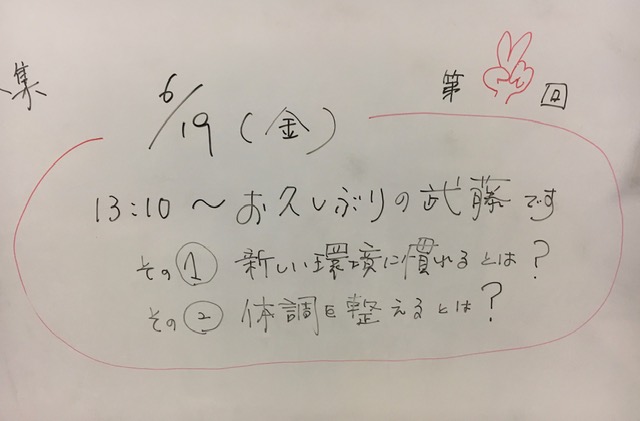 集
第 回
6/19(金)
13:10～お久しぶりの武藤です
その① 新しい環境に慣れるとは？
その② 体調を整えるとは？